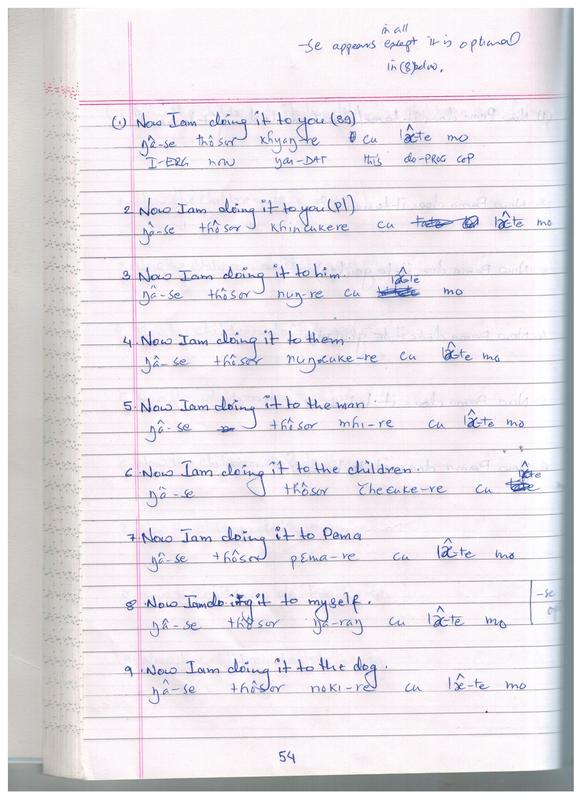 in all
-se appears except it is optional
in (8) below.
(1) Now I am doing it to you (sg)
ŋâ-se thôsor khyaŋ-re cu lʰâ-te mo
I-ERG now you-DAT this do-PROG COP
2 Now I am doing it to you (pl)
ŋâ-se thôsor khincukere cu lʰâ-te mo
3 Now I am doing it to him.
lʰâ-te
ŋâ-se thôsor nuŋ-re cu mo
4. Now I am doing it to them
ŋâ-se thôsor nuŋcuke-re cu lʰâ-te mo
5. Now I am doing it to the man
ŋâ-se thôsor mhi-re cu lʰâ-te mo
6. Now I am doing it to the children.
ŋâ-se thôsor cu
7. Now I am doing it to Pema
ŋâ-se thôsor pɛma-re cu lʰâ-te mo
8. Now I am doing it to myself.
-se
ŋâ-se thôsor ŋa-raŋ cu lʰâ-te mo
9. Now I am doing it to the dog.
ŋâ-se thôsor noki-re cu lʰâ-te mo
54